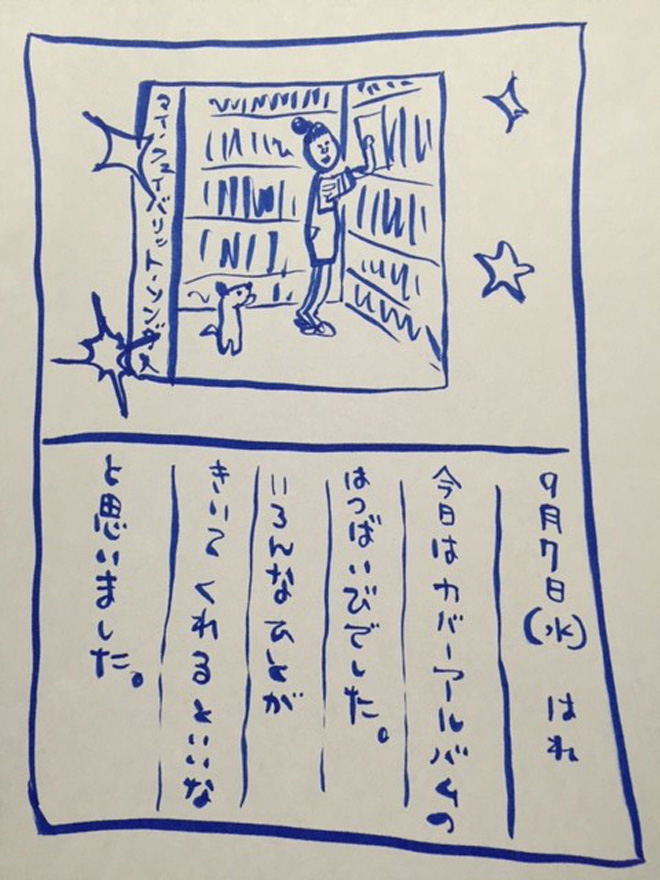 マイ・フェイバリット・ソングス
9月7日(水) はれ
今日はカバーアルバムの
はつばいびでした。
いろんなひとが
きいてくれるといいな
と思いました。